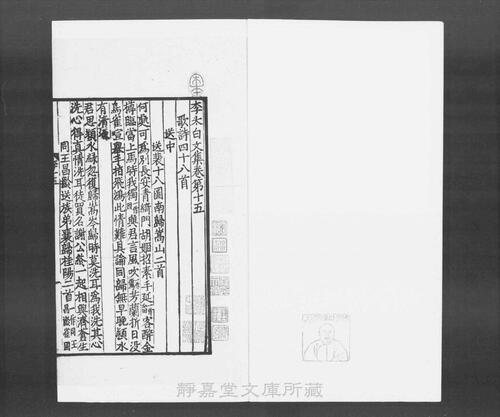 李太白文集卷第十五
歌詩四十八首
送中
送裴十八圖南歸嵩山二首
何處可為別長安青綺門胡姬招素手延客醉金
樽臨當上馬時我獨與君言風吹芳蘭折日没
鳥雀喧舉手指飛鴻此情難具論同歸無早晚潁水
有清源
君思潁水綠忽復歸嵩岑歸時莫洗耳為我洗其心
洗心得真情洗耳徒買名謝公終一起相與濟蒼生
同王昌齡送族弟襄歸桂陽二首
靜嘉堂文庫所藏